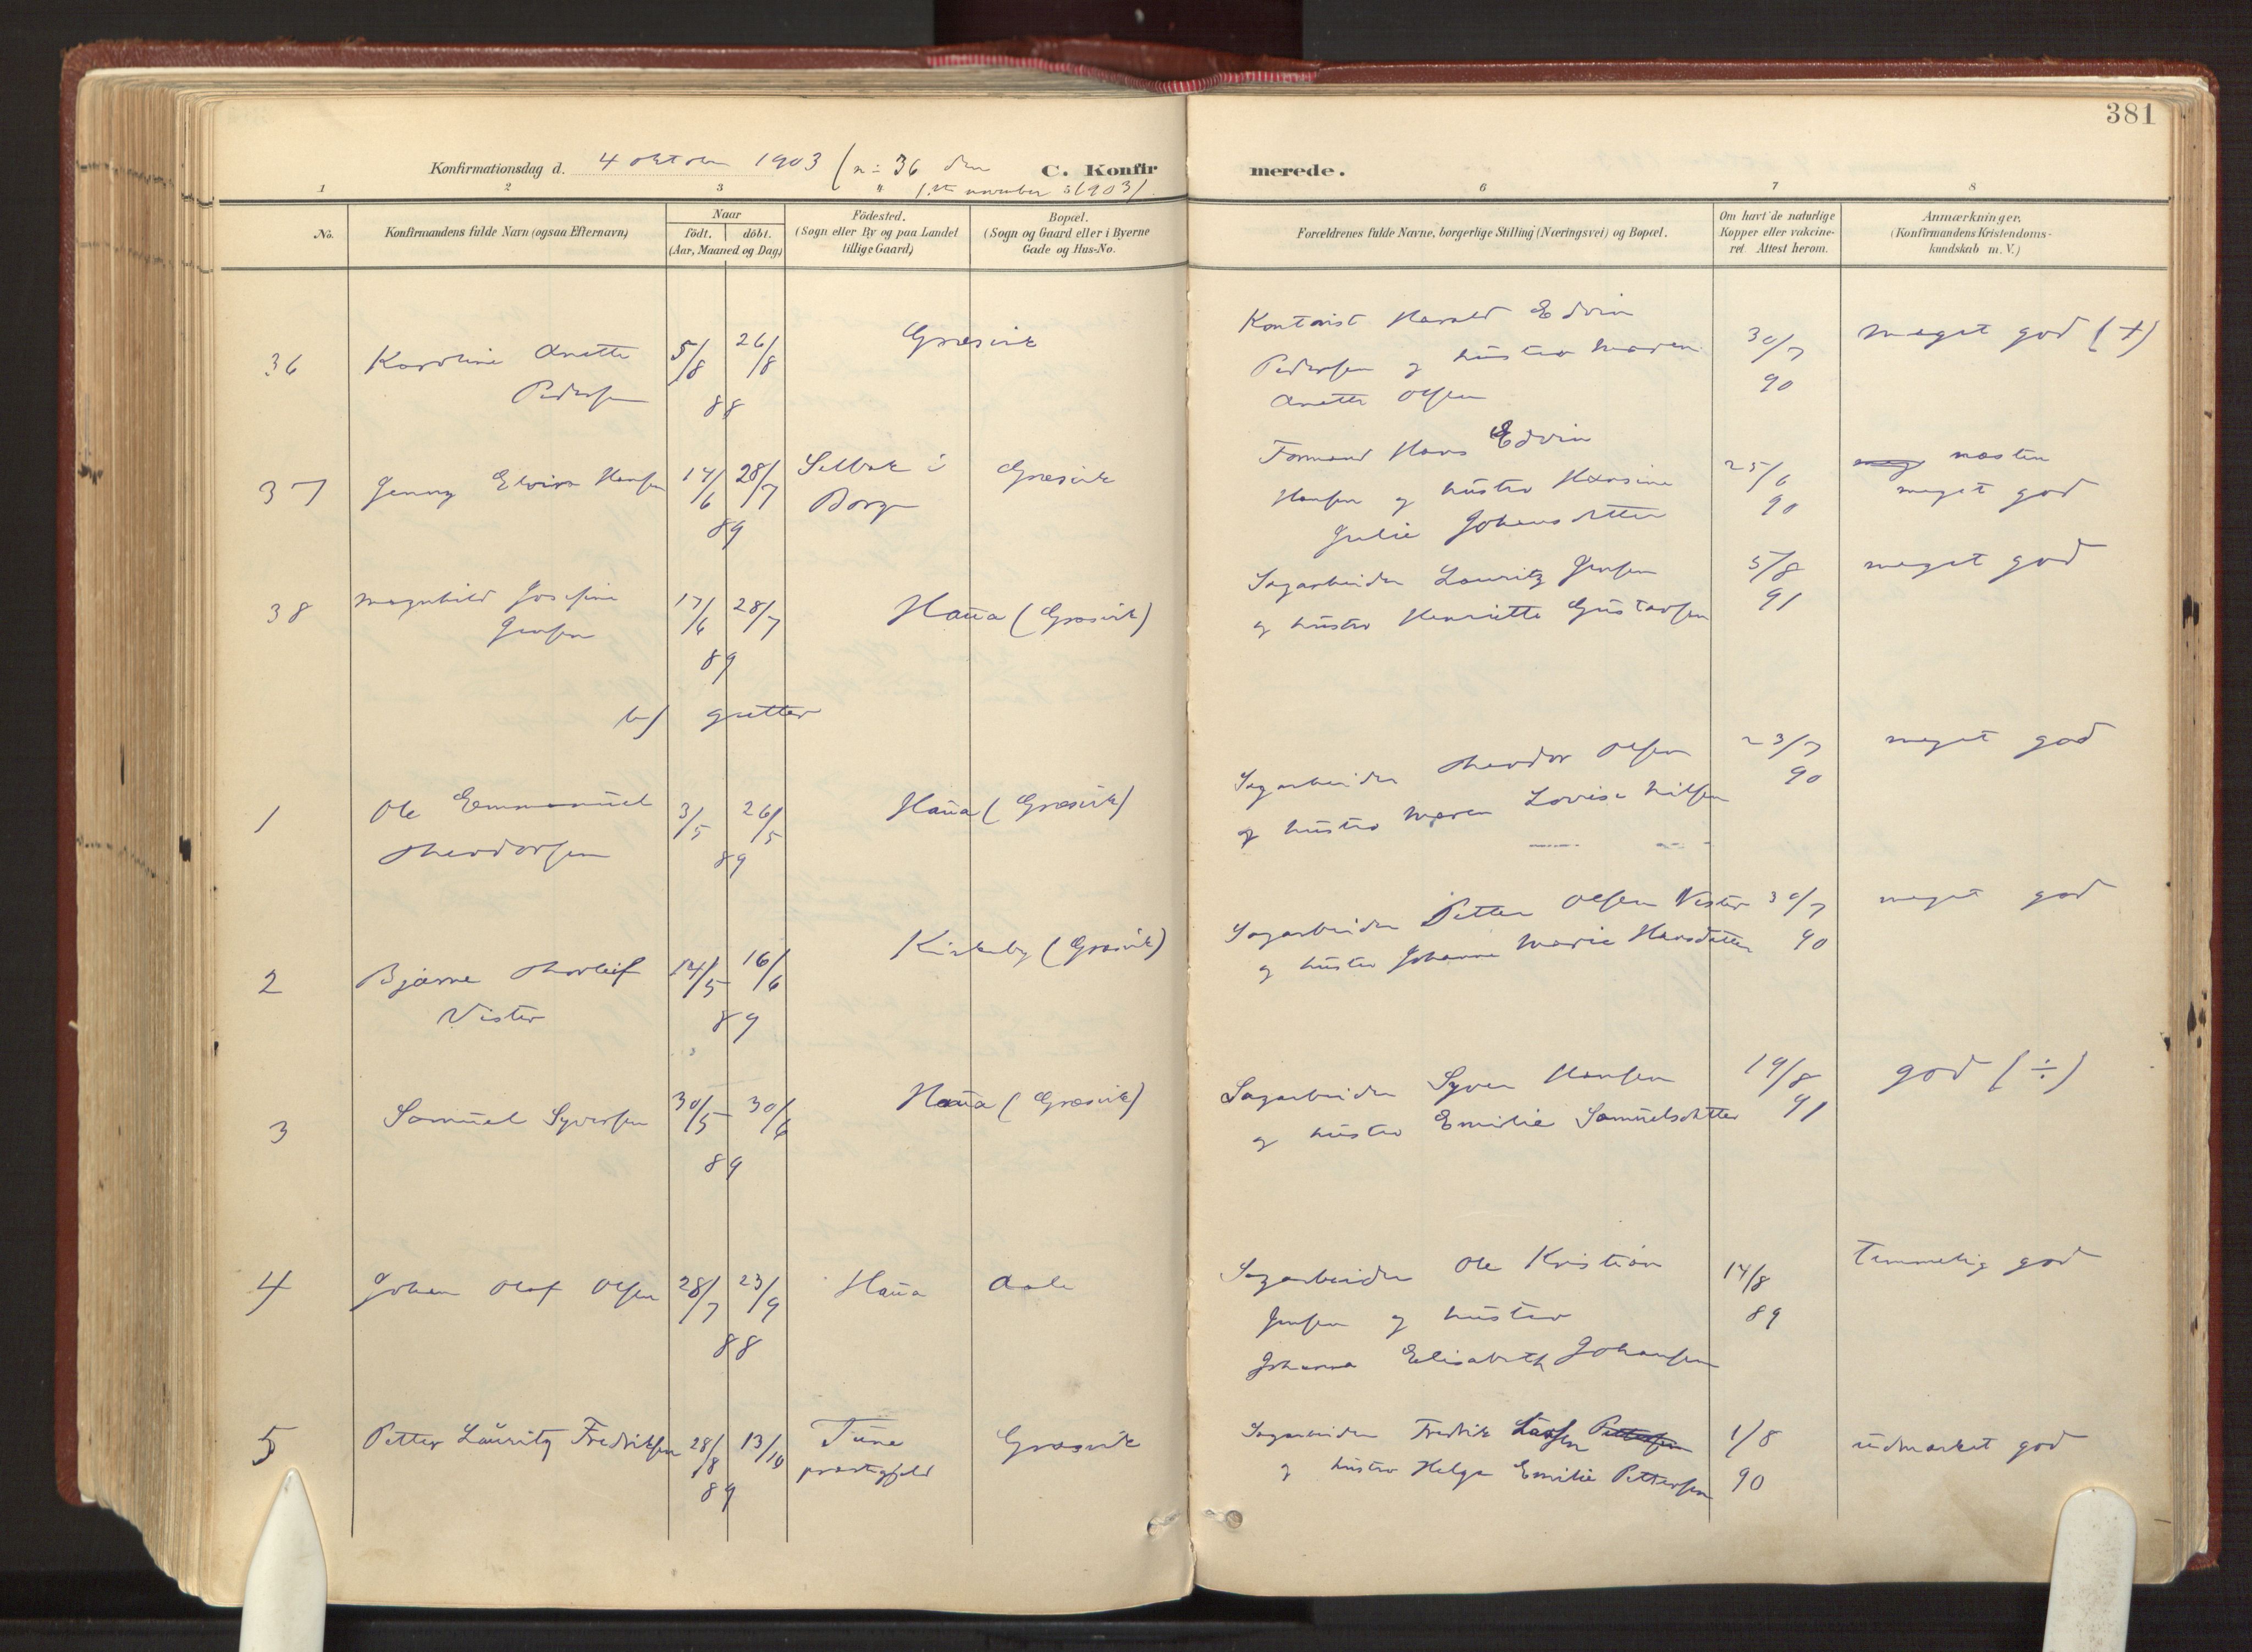 381
Konfirmationsdag d. 4 oktober 1903 (n: 36 den
C. Konfirmerede.
" 1ste november 1903)
1 2 3 6 7 8
No.
Konfirmandens fulde Navn (ogsaa Efternavn)
Naar
födt. döbt.
(Aar, Maaned og Dag)
Födested.
(Sogn eller By og paa Landet
tillige Gaard)
Bopæl.
(Sogn og Gaard eller i Byerne
Gade og Hus-No.
Forældrenes fulde Navne, borgerlige Stilling (Næringsvei) og Bopæl.
Om havt de naturlige
Kopper eller vakcine-
ret. Attest herom.
Anmærkninger.
(Konfirmandens Kristendoms-
kundskab m. V.)
36 Karoline Anette
Pedersen
5/8 26/8
88
Græsvik
Kontorist Harald Edvin
Pedersen og hustru Maren
Anette Olsen
30/7
90
meget god (+)
37 Jenny Elvira Hansen
14/6 28/7
89
Selbak i
Borge
Græsvik
Formand Hans Edvin
Hansen og hustru
Julie Johansdatter
25/6
90
næsten
meget god
38 Magnhild Josefine
Jensen
17/6 28/7
89
Haüa (Græsvik)
Sagarbeider Lauritz Jensen
og hustru Henriette Gustavsen
5/8
91
meget god
b) gutter
1 Ole Emmanuel
Theodorsen
3/5 26/5
89
Haüa (Græsvik)
Sagarbeider Theodor Olsen
og hustru Maren Lovise Nilsen
23/7
90
meget god
2 Bjarne Thorleif
Vister
14/5 16/6
89
Kirkeby (Græsvik)
Sagarbeider Petter Olsen Vister
og hustru Johanne Marie Hansdatter
30/7
90
meget god
3 Samuel Syversen
30/5 30/6
89
Haüa (Græsvik)
Sagarbeider Syver Hansen
og hustru Emilie Samuelsdatter
19/8
91
god (÷)
4 Johan Olaf Olsen
28/7 23/9
88
Haüa
Aale
Sagarbeider Ole Kristian
Jensen og hustru
Johanna Elisabeth Johansen
14/8
89
Temmelig god
5 Petter Lauritz Fredriksen
28/8 13/10
89
Tune
præstegjeld
Græsvik
Sagarbeider Fredrik Larsen Pettersen
og hustru Helga Emilie Pettersen
1/8
90
udmærket god